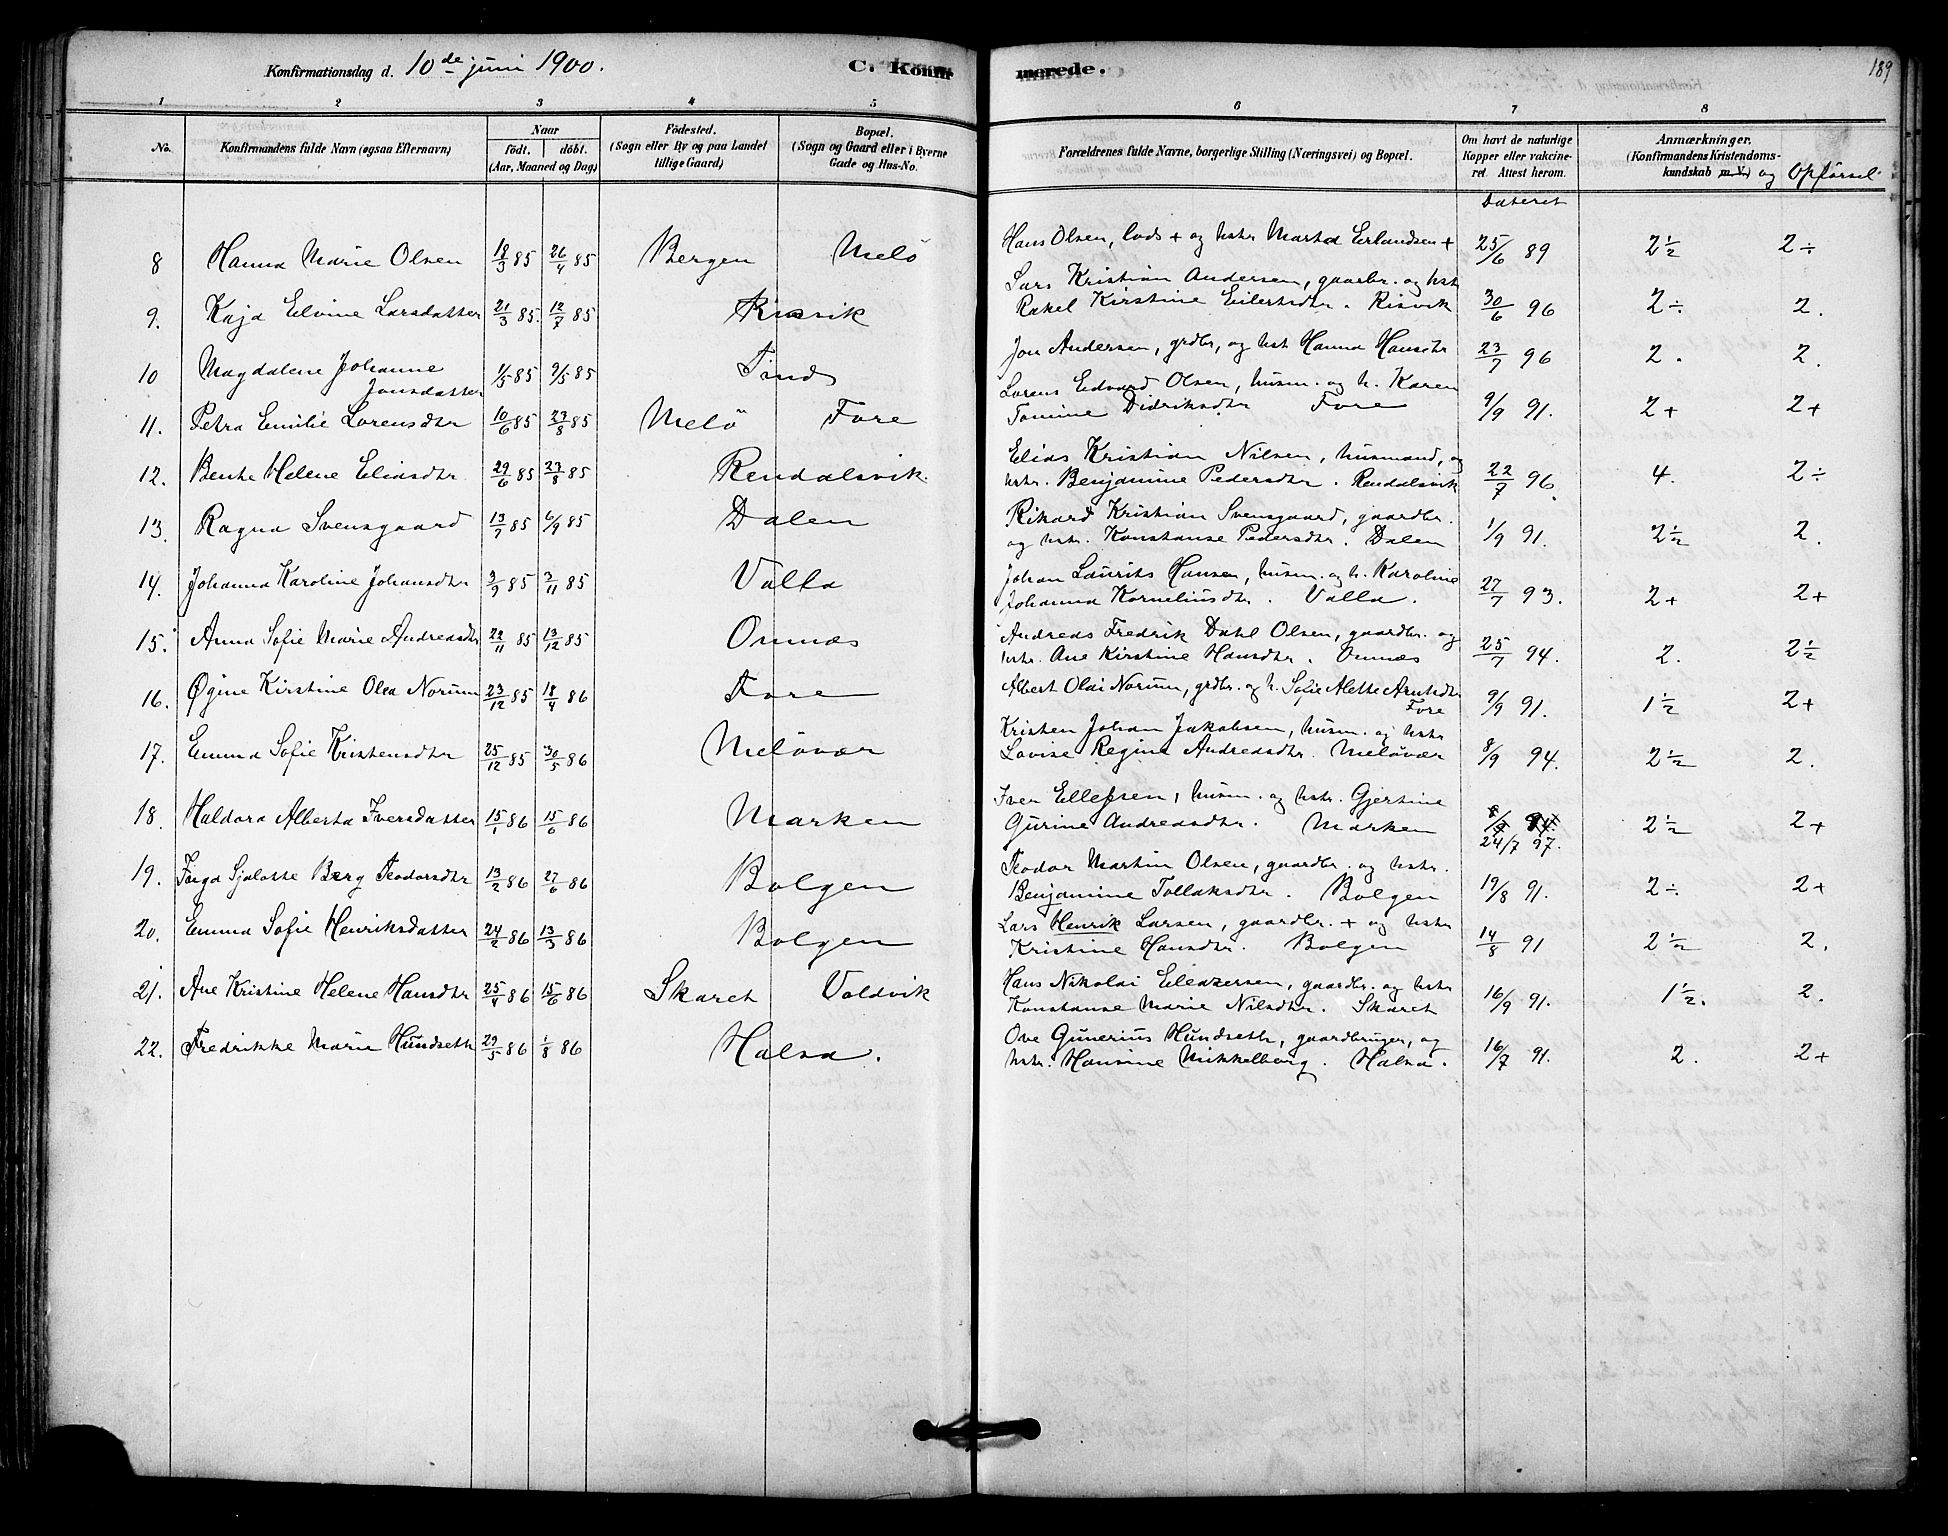 Konfirmationsdag d. 10de juni 1900. C. Konfir- merede. 189
1 2 3 4 5 6 7 8
No. Konfirmandens fulde Navn (ogsaa Efternavn) Naar födt. döbt. (Aar, Maaned og Dag) Födested. (Sogn eller By og paa Landet tillige Gaard) Bopæl. (Sogn og Gaard eller i Byerne Gade og Hus-No. Forældrenes fulde Navne, borgerlige Stilling (Næringsvei) og Bopæl. Om havt de naturlige Kopper eller vakcineret Attest herom. Anmærkninger. (Konfirmandens Kristendomskundskab m. V.) og Opförsel
Dateret
8 Hanna Marie Olsen 18/3 85 26/4 85 Bergen Melö Hans Olsen, lods + og hstr Marta Erlandsen + 25/6 89 2½ 2÷
9. Kaja Elvine Larsdatter 21/3 85. 12/7 85 Risvik Lars Kristian Andersen, gaarbr. og hst
Rakel Kirstine Eilertsdtr. Risvik 30/6 96 2÷ 2.
10 Magdalene Johanne
Jonsdatter 1/5 85 9/5 85 Find Jon Andersen, grdbr, og hst Hanna Hansdtr 23/7 96 2. 2.
11. Petra Emilie Lorensdtr 10/6 85 23/8 85 Melö Fore Lorens Edvard Olsen, husm. og h. Karen
Tomine Didriksdtr Fore 9/9 91. 2+ 2+
12. Bentse Helene Eliasdtr. 29/6 85 23/8 85 Rendalsvik. Elias Kristian Nilsen, husmand, og
hstr. Benjamine Pedersdtr. Rendalsvik 22/7 96. 4. 2÷
13. Ragna Svensgaard 13/7 85 6/9 85 Dalen Rikard Kristian Svensgaard, gaardbr.
og hstr. Konstanse Pedersdtr. Dalen 1/9 91. 2½ 2.
14. Johanna Karoline Johansdtr 3/9 85 3/11 85 Valla Johan Laurits Hansen, husm. og h. Karoline
Johanna Korneliusdtr. Valla. 27/7 93. 2+ 2+
15. Anna Sofie Marie Andreasdtr 22/11 85 13/12 85 Ornæs Andreas Fredrik Dahl Olsen, gaardbr. og
hstr. Ane Kirstine Hansdtr. Ornæs 25/7 94. 2. 2½
16. Øgine Kirstine Olea Norum 23/12 85 18/4 86 Fore Albert Olai Norum, grdbr. og h. Sofie Alette Arntsdtr
Fore 9/9 91. 1½ 2+
17. Emma Sofie Kristensdtr 25/12 85 30/5 86 Melövær Kristen Johan Jakobsen, husm. og hstr
Lovise Regine Andreasdtr. Melövær 8/9 94. 2½ 2.
18. Haldora Alberta Iversdatter 15/1 86 15/6 86 Marken Iver Ellefsen, husm. og hstr. Gjertine
Gurine Andreasdtr. Marken 8/9 94
24/7 97. 2½ 2+
19. Inga Sjalotte Berg Teodorsdtr 13/2 86 27/6 86 Bolgen Teodor Martin Olsen, gaardbr. og hstr.
Benjamine Tollaksdtr. Bolgen 19/8 91. 2÷ 2+
20. Emma Sofie Henriksdatter 24/2 86 13/3 86 Bolgen Lars Henrik Larsen, gaardbr. + og hstr
Kristine Hansdtr. Bolgen 14/8 91 2½ 2.
21. Ane Kristine Helene Hansdtr 25/4 86 15/6 86 Skaret Valdvik Hans Nikolai Eleazersen, gaardbr. og hstr
Konstanse Marie Nilsdtr. Skaret 16/9 91. 1½. 2.
22. Fredrikke Marie Hundseth 29/5 86 1/8 86 Halsa. Ove Gunerius Hundseth, gaardbruger, og
hstr. Hansine Mikkelborg. Halsa. 16/7 91. 2. 2+